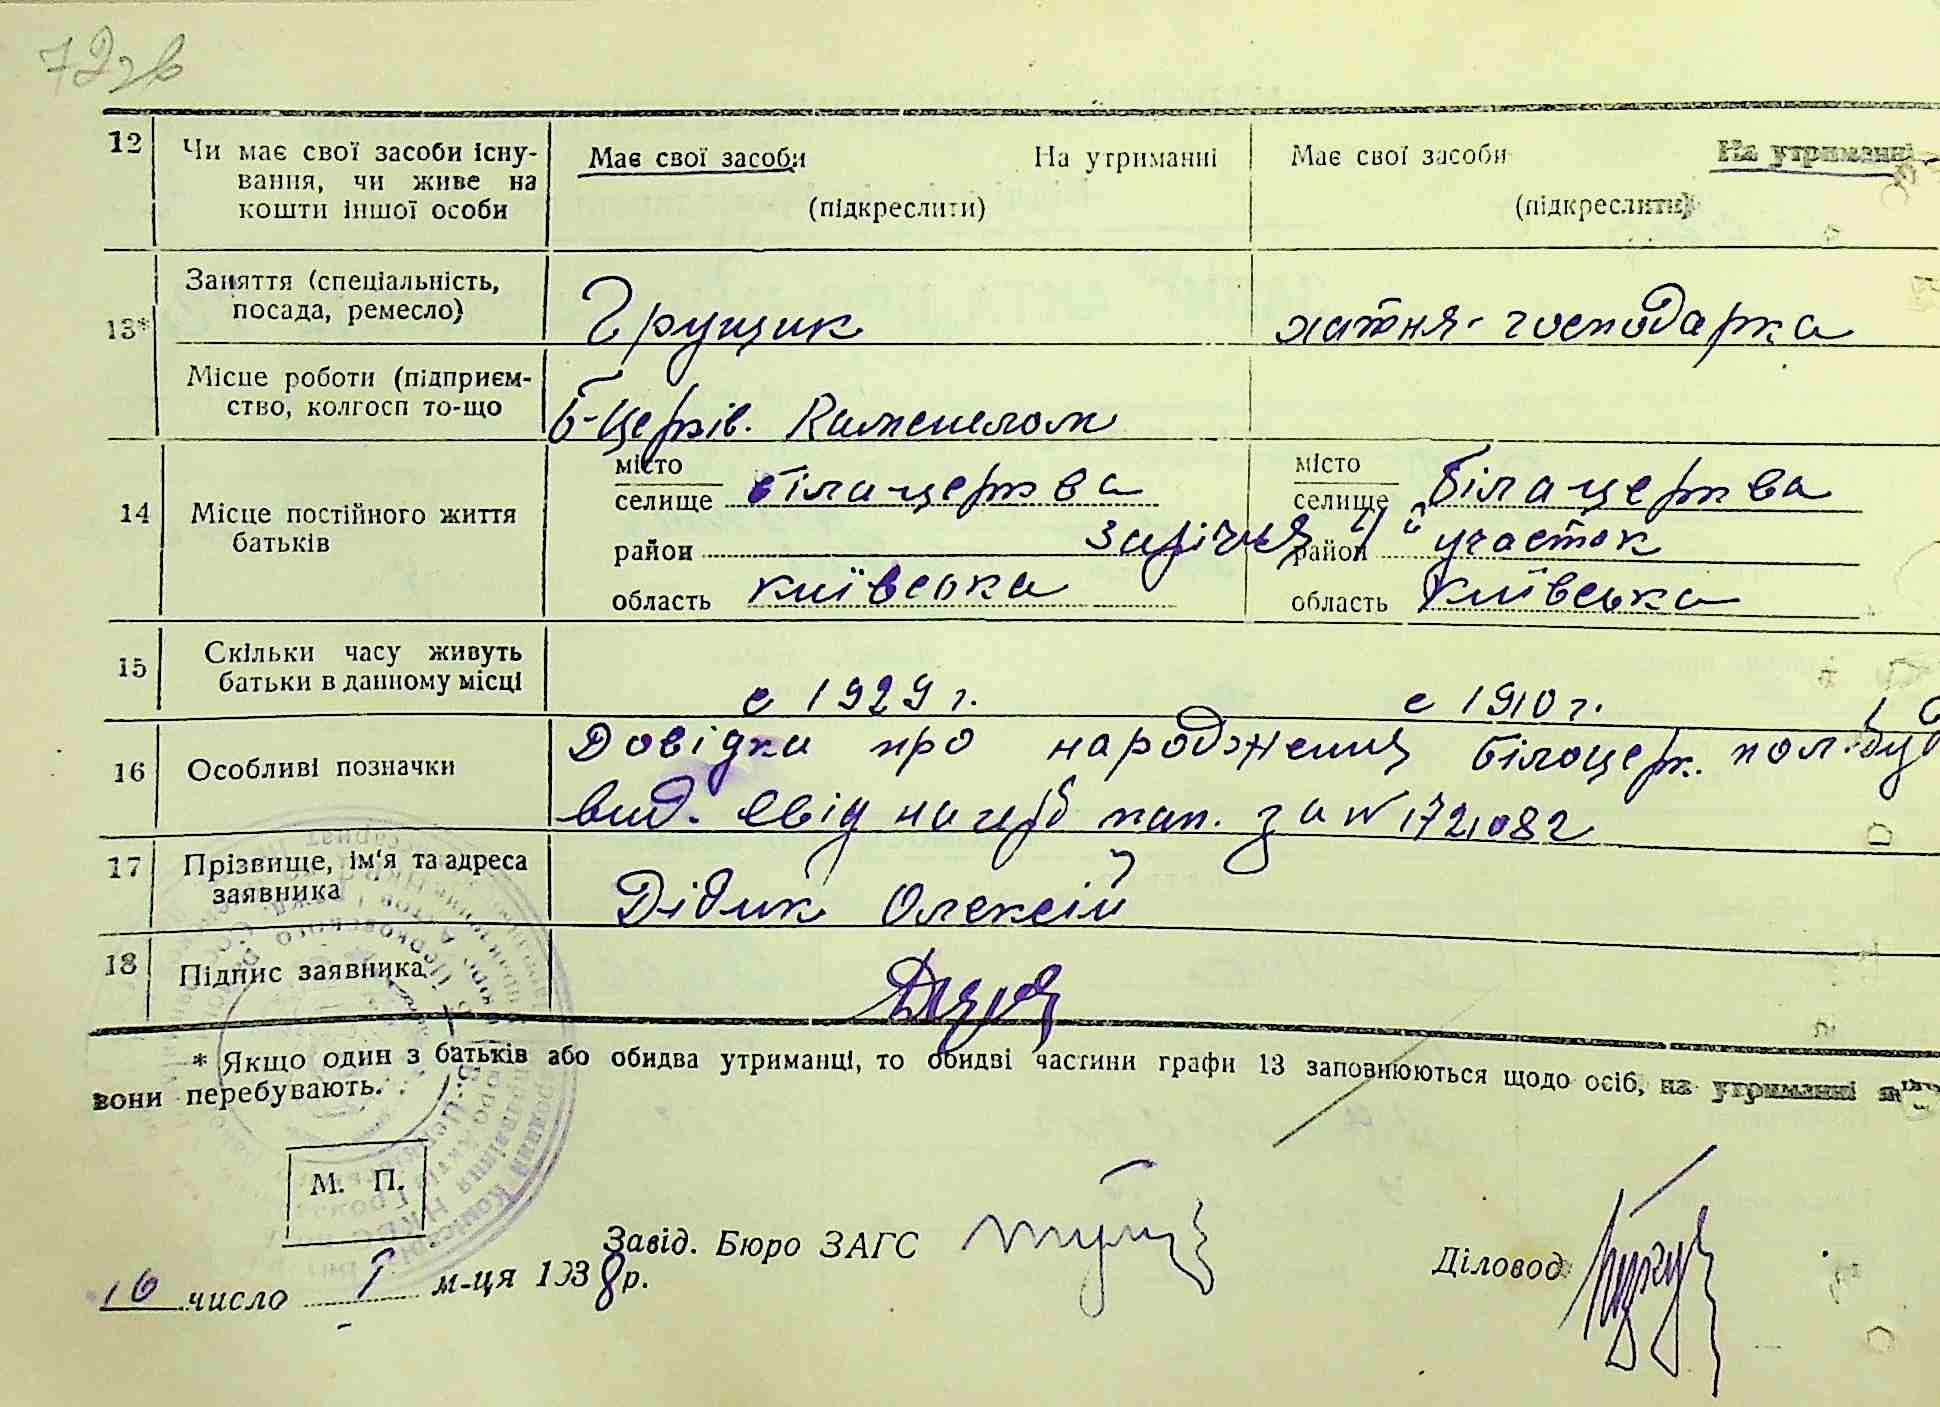 72зв
12 Чи має свої засоби існу-
вання, чи живе на
кошти іншої особи
Має свої засоби На утриманні
(підкреслити)
Має свої засоби На утриманні
(підкреслити)
13* Заняття (спеціальність,
посада, ремесло)
Грущик
хатня-господарка
Місце роботи (підприєм-
ство, колгосп то-що
Б-Церків. Каменелом
14 Місце постійного життя
батьків
місто
селище білацерква
район
область київська
місто
селище Білацерква
Заріччя 4й район участок
область Київська
15 Скільки часу живуть
батьки в данному місці
с 1929 г.
с 1910 г.
16 Особливі позначки
Довідка про народження білоцерк. пол.
вид. Свід на герб пап. за № 1721082
17 Прізвище, ім'я та адреса
заявника
Дідик Олексій
18 Підпис заявника
* Якщо один з батьків або обидва утриманці, то обидві частини графи 13 заповнюються щодо осіб, на утриманні яких
вони перебувають.
М. П.
Завід. Бюро ЗАГС
Діловод
16 число I м-ця 1938 р.